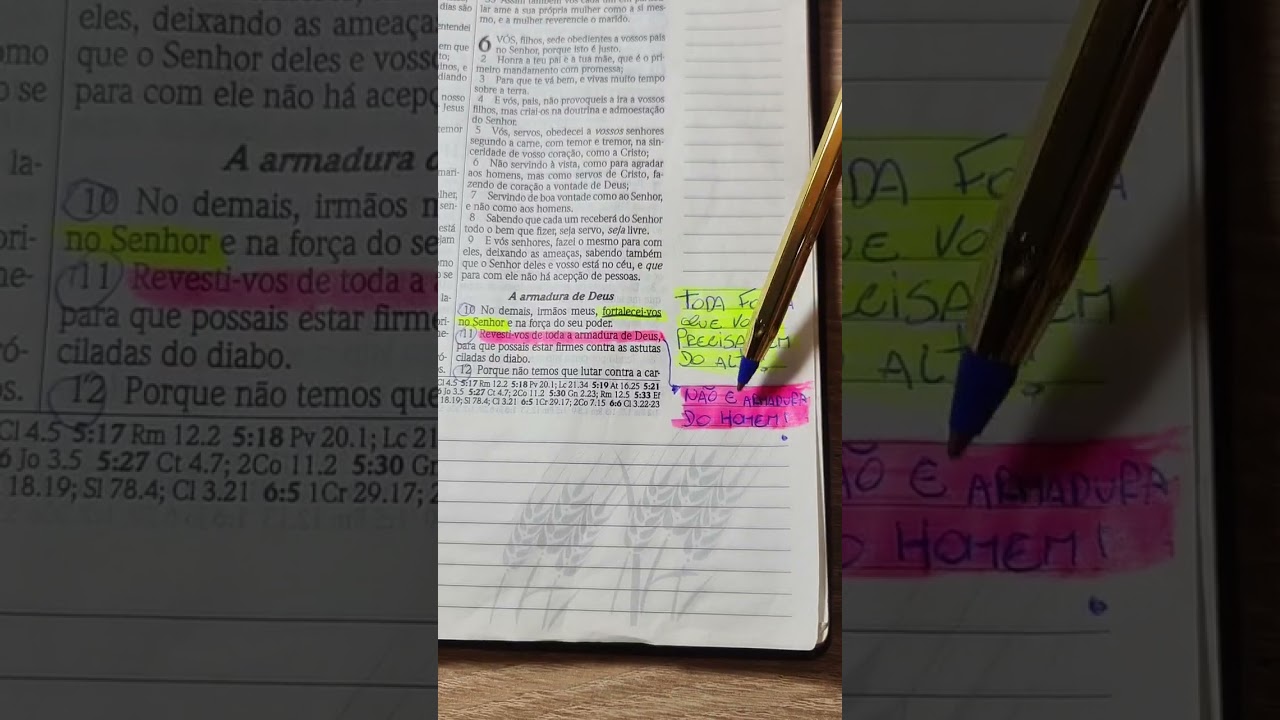 dias são
entendei
em que
to;
inos, e
diando
nosso
Jesus
temor
mari-
lher,
sen-
está
jam
omo
o se
la-
ori-
ne-
ró-
s.
lar ame a sua própria mulher como a si mes-
mo, e a mulher reverencie o marido.
6 VÓS, filhos, sede obedientes a vossos pais
no Senhor, porque isto é justo.
2 Honra a teu pai e a tua mãe, que é o pri-
meiro mandamento com promessa;
3 Para que te vá bem, e vivas muito tempo
sobre a terra.
4 E vós, pais, não provoqueis a ira a vossos
filhos, mas criai-os na doutrina e admoestação
do Senhor.
5 Vós, servos, obedecei a vossos senhores
segundo a carne, com temor e tremor, na sin-
ceridade de vosso coração, como a Cristo;
6 Não servindo à vista, como para agradar
aos homens, mas como servos de Cristo, fa-
zendo de coração a vontade de Deus;
7 Servindo de boa vontade como ao Senhor,
e não como aos homens.
8 Sabendo que cada um receberá do Senhor
todo o bem que fizer, seja servo, seja livre.
9 E vós senhores, fazei o mesmo para com
eles, deixando as ameaças, sabendo também
que o Senhor deles e vosso está no céu, e que
para com ele não há acepção de pessoas.
A armadura de Deus
10 No demais, irmãos meus, fortalecei-vos
no Senhor e na força do seu poder.
11 Revesti-vos de toda a armadura de Deus,
para que possais estar firmes contra as astutas
ciladas do diabo.
12 Porque não temos que lutar contra a car-
Cl 4.5 5:17 Rm 12.2 5:18 Pv 20.1; Lc 21.34 5:19 At 16.25 5:21
6 Jo 3.5 5:27 Ct 4.7; 2Co 11.2 5:30 Gn 2.23; Rm 12.5 5:33 Ef
18.19; Sl 78.4; Cl 3.21 6:5 1Cr 29.17; 2Co 7.15 6:6 Cl 3.22-23
TODA
QUE
PRECISA
DO
NÃO E ARMADURA
DO HOMEM!